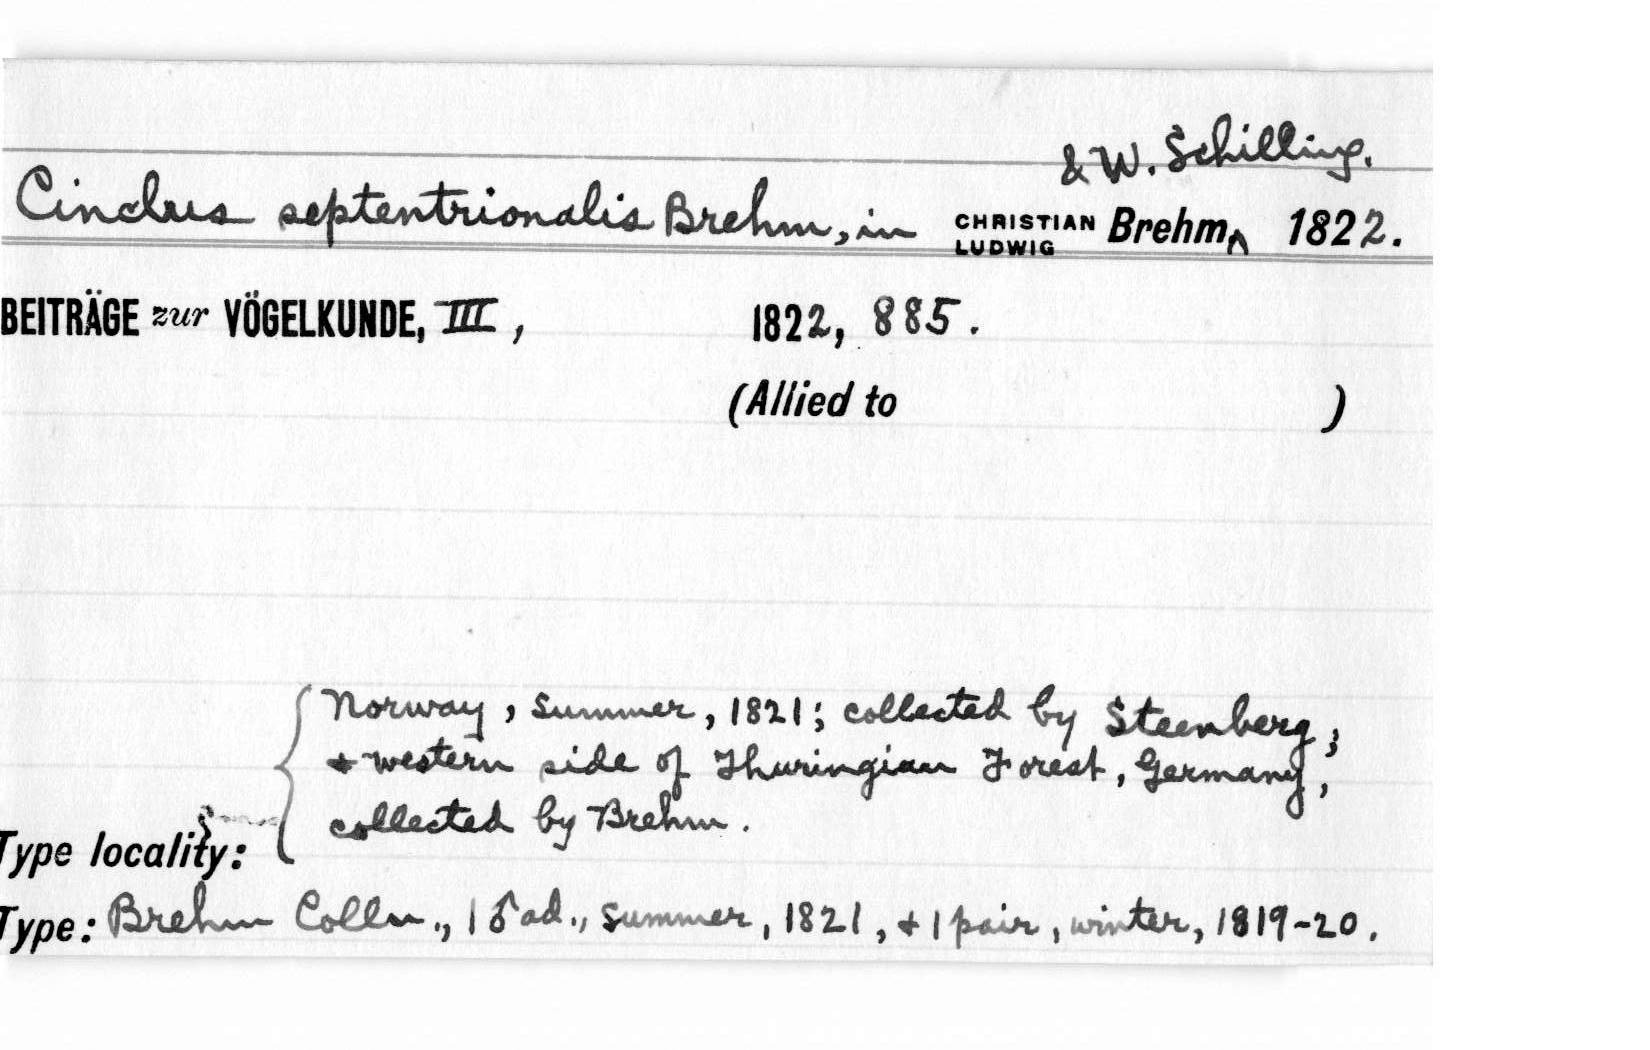 & W. Schilling.
Cinclus septentrionalis Brehm, in CHRISTIAN LUDWIG Brehm‸ 1822.
BEITRÄGE zur VÖGELKUNDE, III, 1822, 885.
(Allied to )
Norway, summer, 1821; collected by Steenberg;
& western side of Thuringian Forest, Germany,
collected by Brehm.
Type locality:
Type: Brehm Colln., 1 ♂ ad., summer, 1821, & 1 pair, winter, 1819-20.